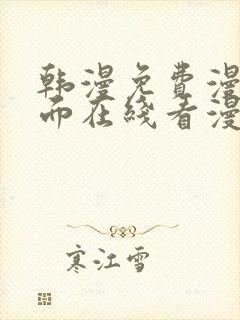 韩漫免费漫
而在线看漫
寒江雪